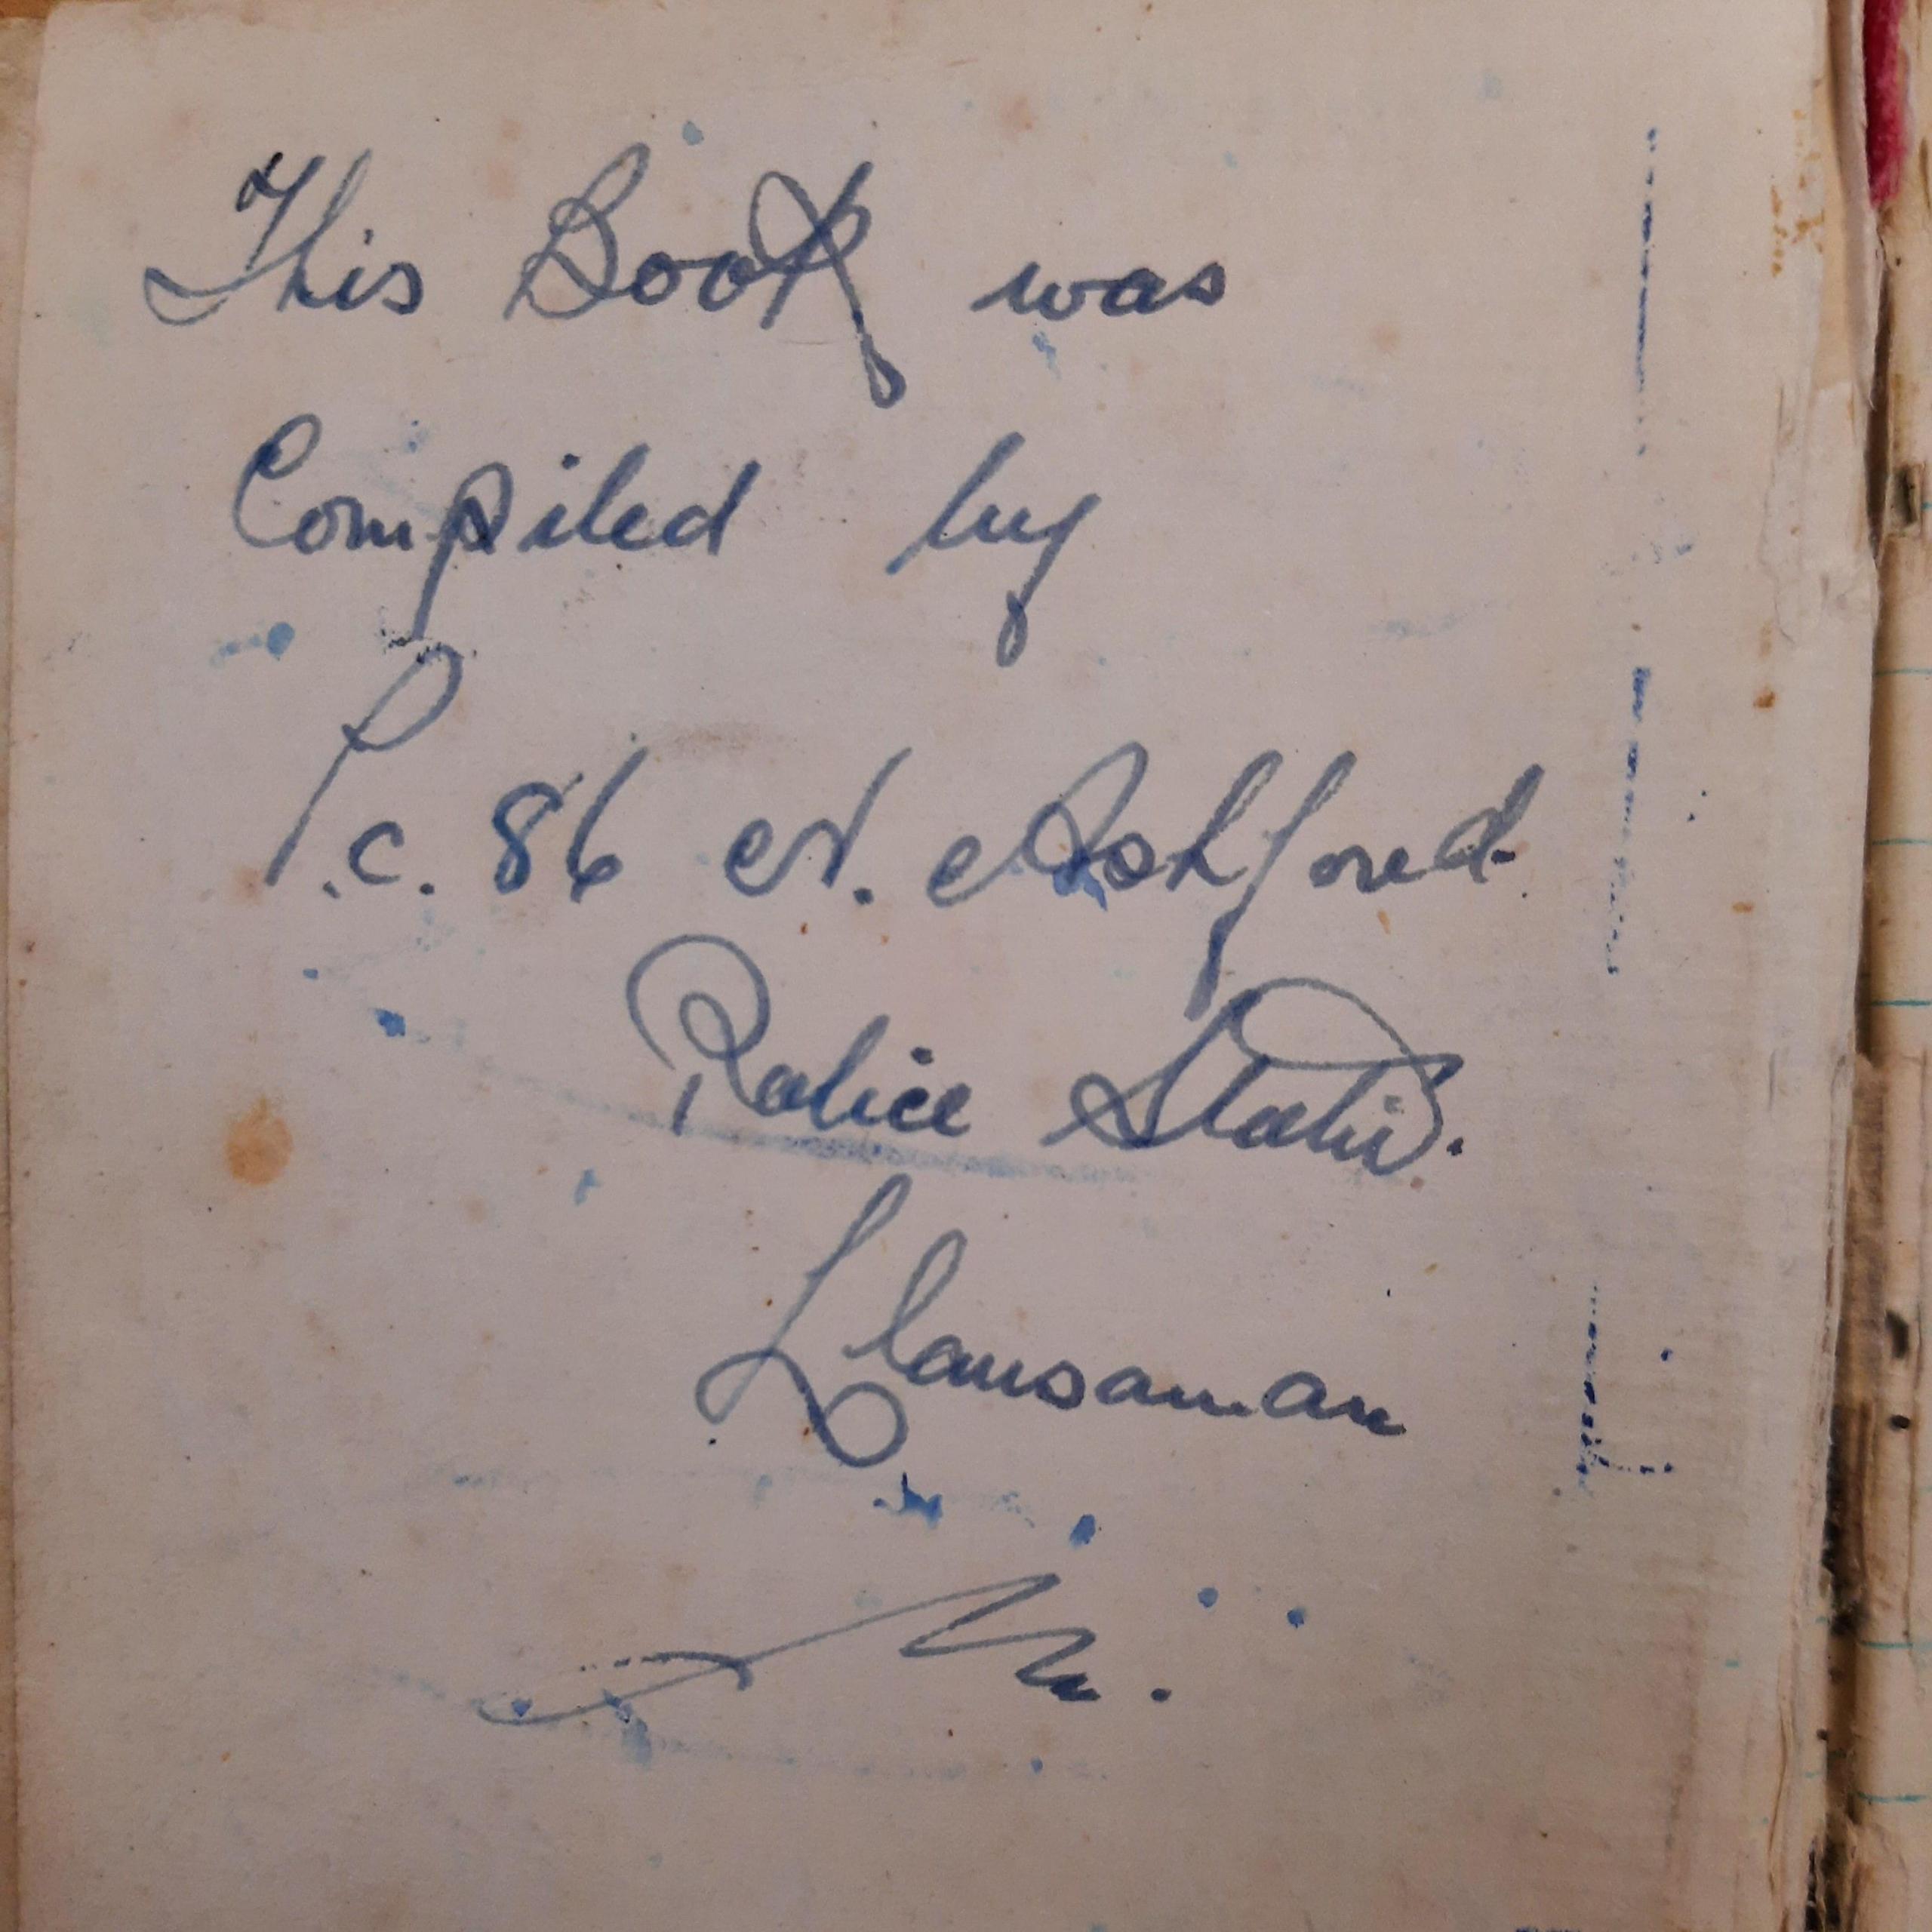 This Book was
Compiled by
P.c. 86 N. Ashford.
Police Station.
Llansannan